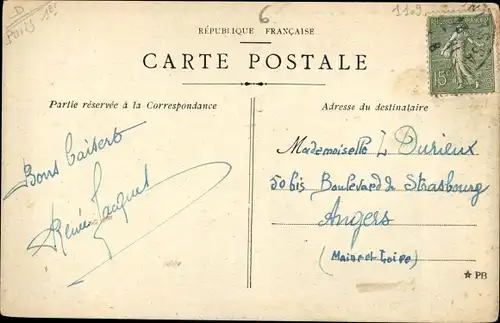 D
Paris 1er
6
RÉPUBLIQUE FRANÇAISE
CARTE POSTALE
15c
Partie réservée à la Correspondance
Adresse du destinataire
Bons baisers
Renée Jacques
Mademoiselle L Durieux
50 bis Boulevard de Strasbourg
Angers
(Maine et Loire)
★ PB